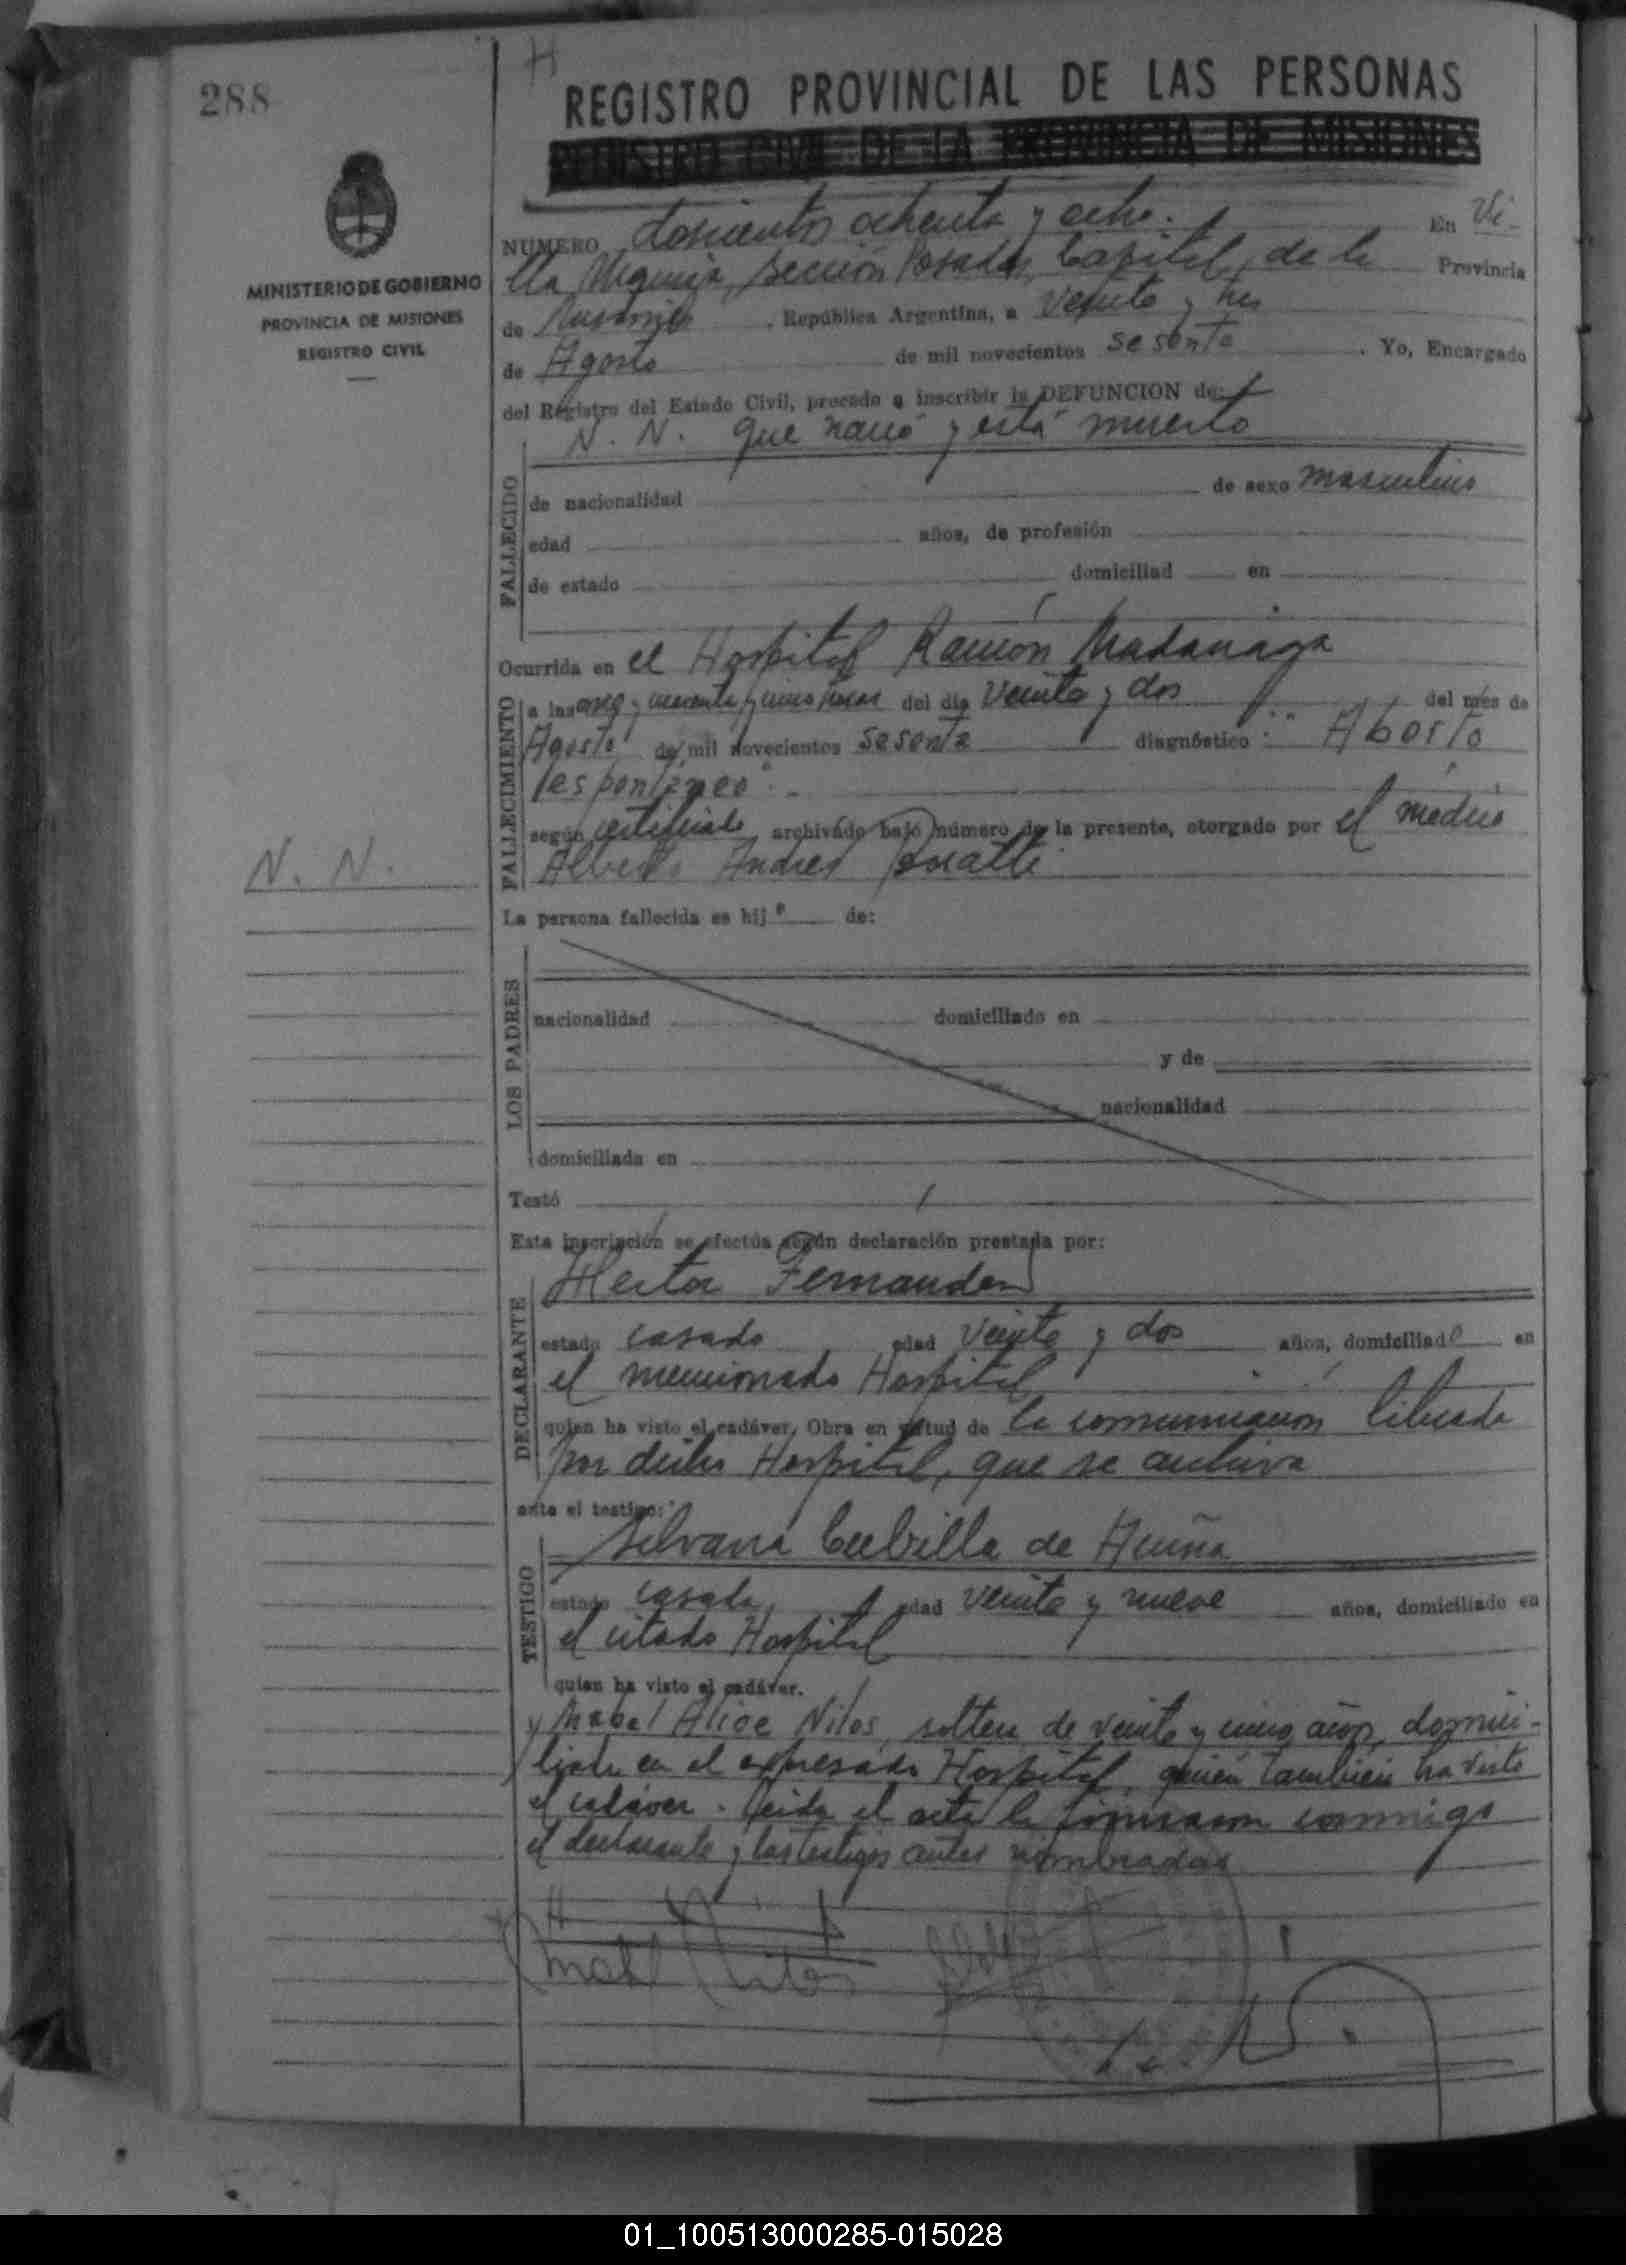 288
H
REGISTRO PROVINCIAL DE LAS PERSONAS
REGISTRO CIVIL DE LA PROVINCIA DE MISIONES
MINISTERIO DE GOBIERNO
PROVINCIA DE MISIONES
REGISTRO CIVIL
NUMERO doscientos ochenta y ocho. En Vi-
lla Urquiza, Sección Posadas, Capital de la Provincia
de Misiones, República Argentina, a veinte y tres
de Agosto de mil novecientos sesenta. Yo, Encargado
del Registro del Estado Civil, procedo a inscribir la DEFUNCION de:
N. N. que nació y está muerto
FALLECIDO
de nacionalidad de sexo masculino
edad años, de profesión
de estado domiciliad en
Ocurrida en el Hospital Ramón Madariaga
FALLECIMIENTO
a las once y cuarenta y cinco horas del día veinte y dos del mes de
Agosto de mil novecientos sesenta diagnóstico: "Aborto
espontáneo".-
según certificado archivado bajo número de la presente, otorgado por el médico
Alberto Andrés
N. N.
La persona fallecida es hijo de:
LOS PADRES
nacionalidad domiciliado en
y de
nacionalidad
domiciliada en
Testó
Esta inscripción se efectúa según declaración prestada por:
DECLARANTE
Hector Fernandez
estado casado edad veinte y dos años, domiciliado en
el mencionado Hospital
quien ha visto el cadáver, Obra en virtud de la comunicación librada
por dicho Hospital, que se archiva
ante el testigo:
TESTIGO
Silvana Cubilla de Acuña
estado casada, edad veinte y nueve años, domiciliado en
el citado Hospital
quien ha visto el cadáver.
y Mabel Alice Nilos, soltera de veinte y cinco años, domici-
liada en el expresado Hospital, quien también ha visto
el cadáver. Leída el acta la firmaron conmigo
el declarante y las testigos antes nombradas
01_100513000285-015028